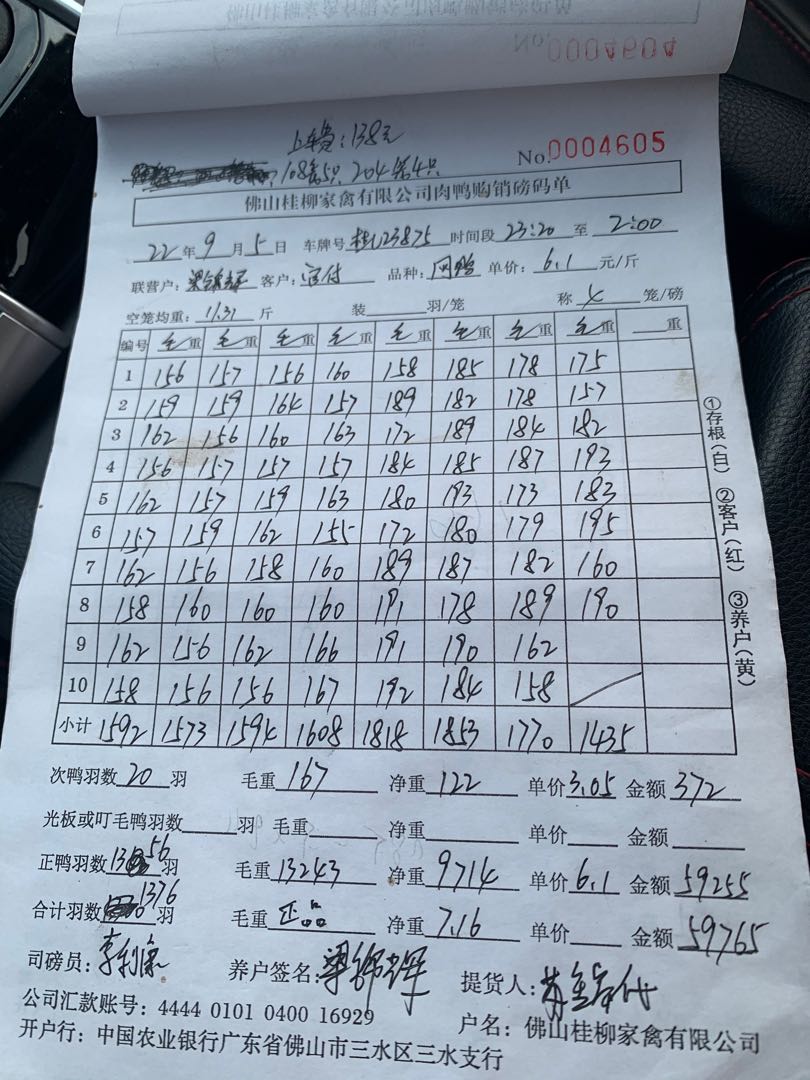 No.0004604
上车费：138元
No.0004605
108笼5只，204笼4只
佛山桂柳家禽有限公司肉鸭购销磅码单
22年9月5日 车牌号 桂J23875 时间段 23:20 至 2:00
联营户：梁锦辉 客户： 品种： 单价：6.1 元/斤
空笼均重：11.31 斤 装 羽/笼 称 4 笼/磅
编号 毛重 毛重 毛重 毛重 毛重 毛重 毛重 毛重 重
1 156 157 156 160 158 185 178 175
2 159 159 164 157 189 182 178 157
3 162 156 160 163 172 189 184 182
4 156 157 157 157 184 185 187 193
5 162 157 159 163 180 193 173 183
6 157 159 162 155 172 180 179 195
7 162 156 158 160 189 187 182 160
8 158 160 160 160 191 178 189 190
9 162 156 162 166 191 190 162
10 158 156 156 167 192 184 158
小计 1592 1573 1594 1608 1818 1853 1770 1435
次鸭羽数 20 羽 毛重 167 净重 122 单价 3.05 金额 372
光板或叮毛鸭羽数 羽 毛重 净重 单价 金额
正鸭羽数 1356 羽 毛重 13243 净重 9714 单价 6.1 金额 59255
合计羽数 1376 羽 毛重 正品 净重 7.16 单价 金额 59765
司磅员： 养户签名：梁锦辉 提货人：
公司汇款账号：4444 0101 0400 16929 户名：佛山桂柳家禽有限公司
开户行：中国农业银行广东省佛山市三水区三水支行
①存根（白） ②客户（红） ③养户（黄）